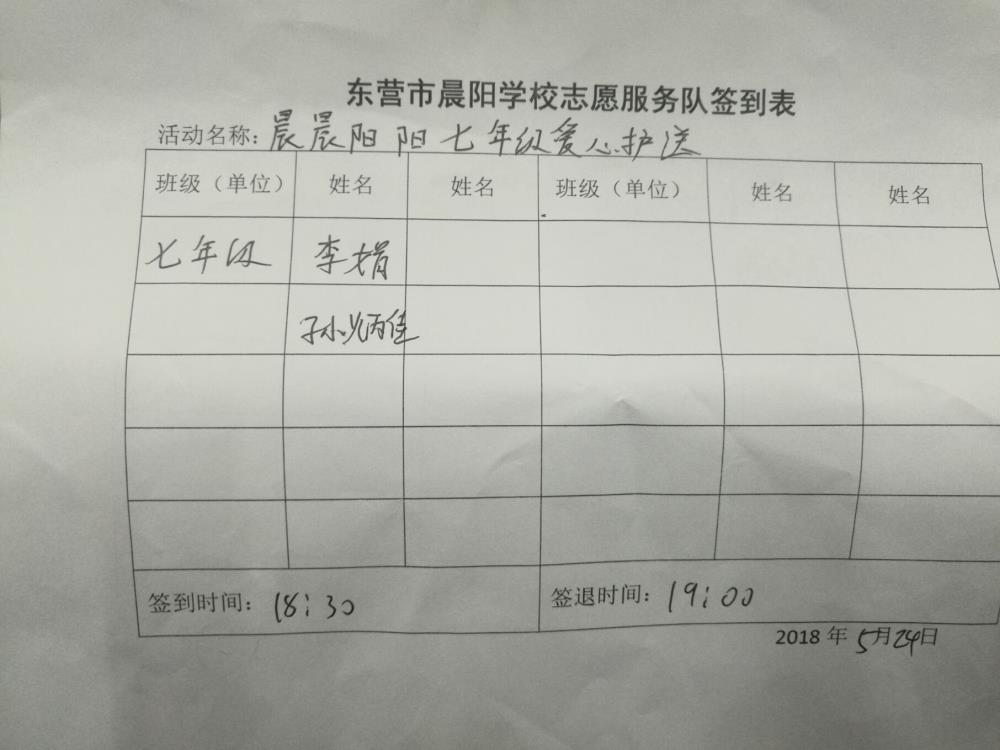 东营市晨阳学校志愿服务队签到表
活动名称：晨晨阳阳七年级爱心护送
班级（单位） 姓名 姓名 班级（单位） 姓名 姓名
七年级 李娟
孙炳佳
签到时间：18:30 签退时间：19:00
2018年5月24日